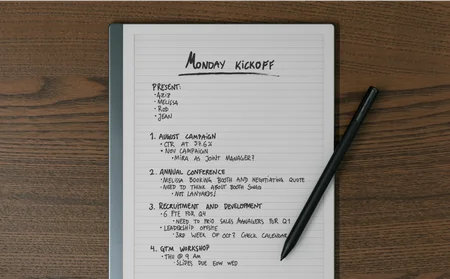 MONDAY KICKOFF
PRESENT:
• AZIZ
• MELISSA
• ROD
• JEAN
1. AUGUST CAMPAIGN
• CTR AT 37.6%
• NOV CAMPAIGN
• MIRA AS JOINT MANAGER?
2. ANNUAL CONFERENCE
• MELISSA BOOKING BOOTH AND NEGOTIATING QUOTE
• NEED TO THINK ABOUT BOOTH SWAG
• NOT LANYARDS!
3. RECRUITMENT AND DEVELOPMENT
• 6 FTE FOR Q4
• NEED TO PRIO SALES MANAGERS FOR Q1
• LEADERSHIP OFFSITE
• 3RD WEEK OF OCT? CHECK CALENDAR
4. GTM WORKSHOP
• THU @ 9 AM
• SLIDES DUE EOW WED